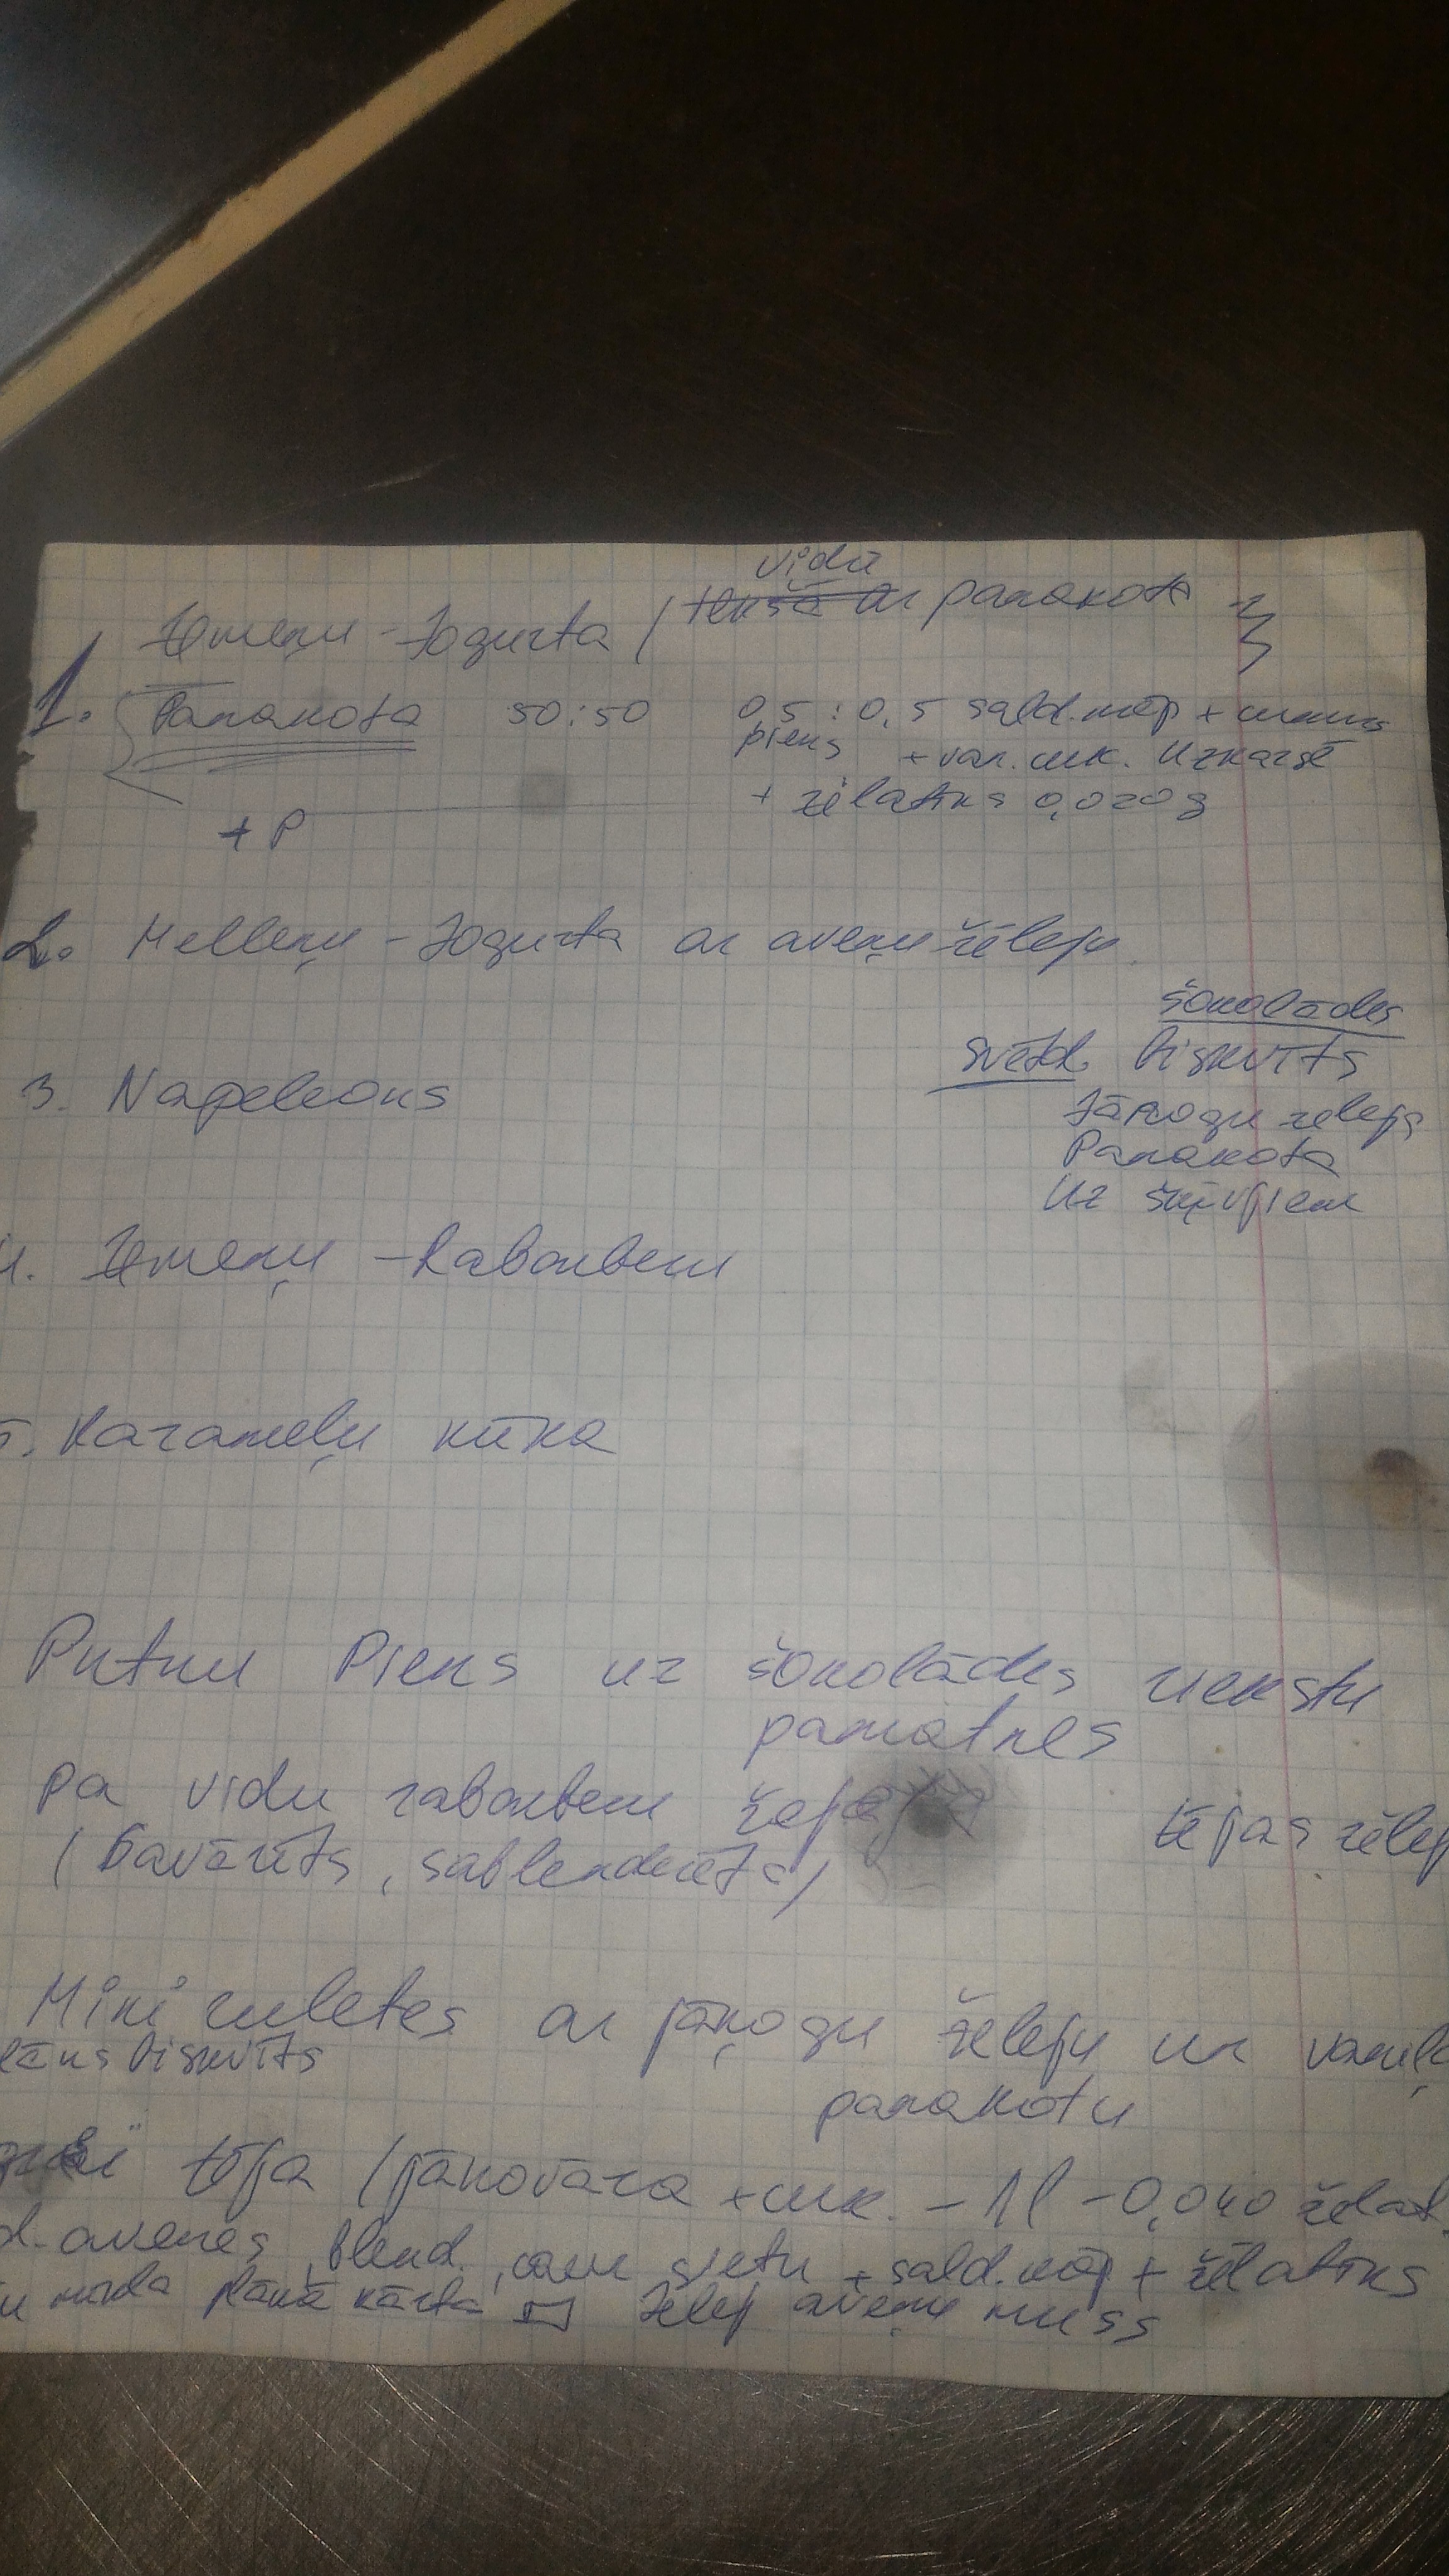 vidū
Zemeņu - Jogurta / iekšā ar panakota
1. Panakota 50:50
0,5 : 0,5 sald. krēj +
piens + van. cuk. Uzkarsē
+ želatīns 0,020g
+ P
2. Melleņu - Jogurta ar aveņu želeju
3. Napoleons
šokolādes
svētd. biskvīts
Jāņogu želeja
Panakota
Uz šķīvjiem
4. Zemeņu - Rabarberu
5. Karameļu kūka
Putnu Piens uz šokolādes riekstu
pamatnes
pa vidu rabarberu
(savārīts, sablenderēts)
tējas želej
Mini ruletes ar jāņogu želeju un vaniļ
plāns biskvīts
panakotu
tēja / pāruvāra + cuk. - 1l - 0,040 želat.
avenes, blend., caur sietu + sald. krēj + želatīns
plānā kārta želej aveņu muss